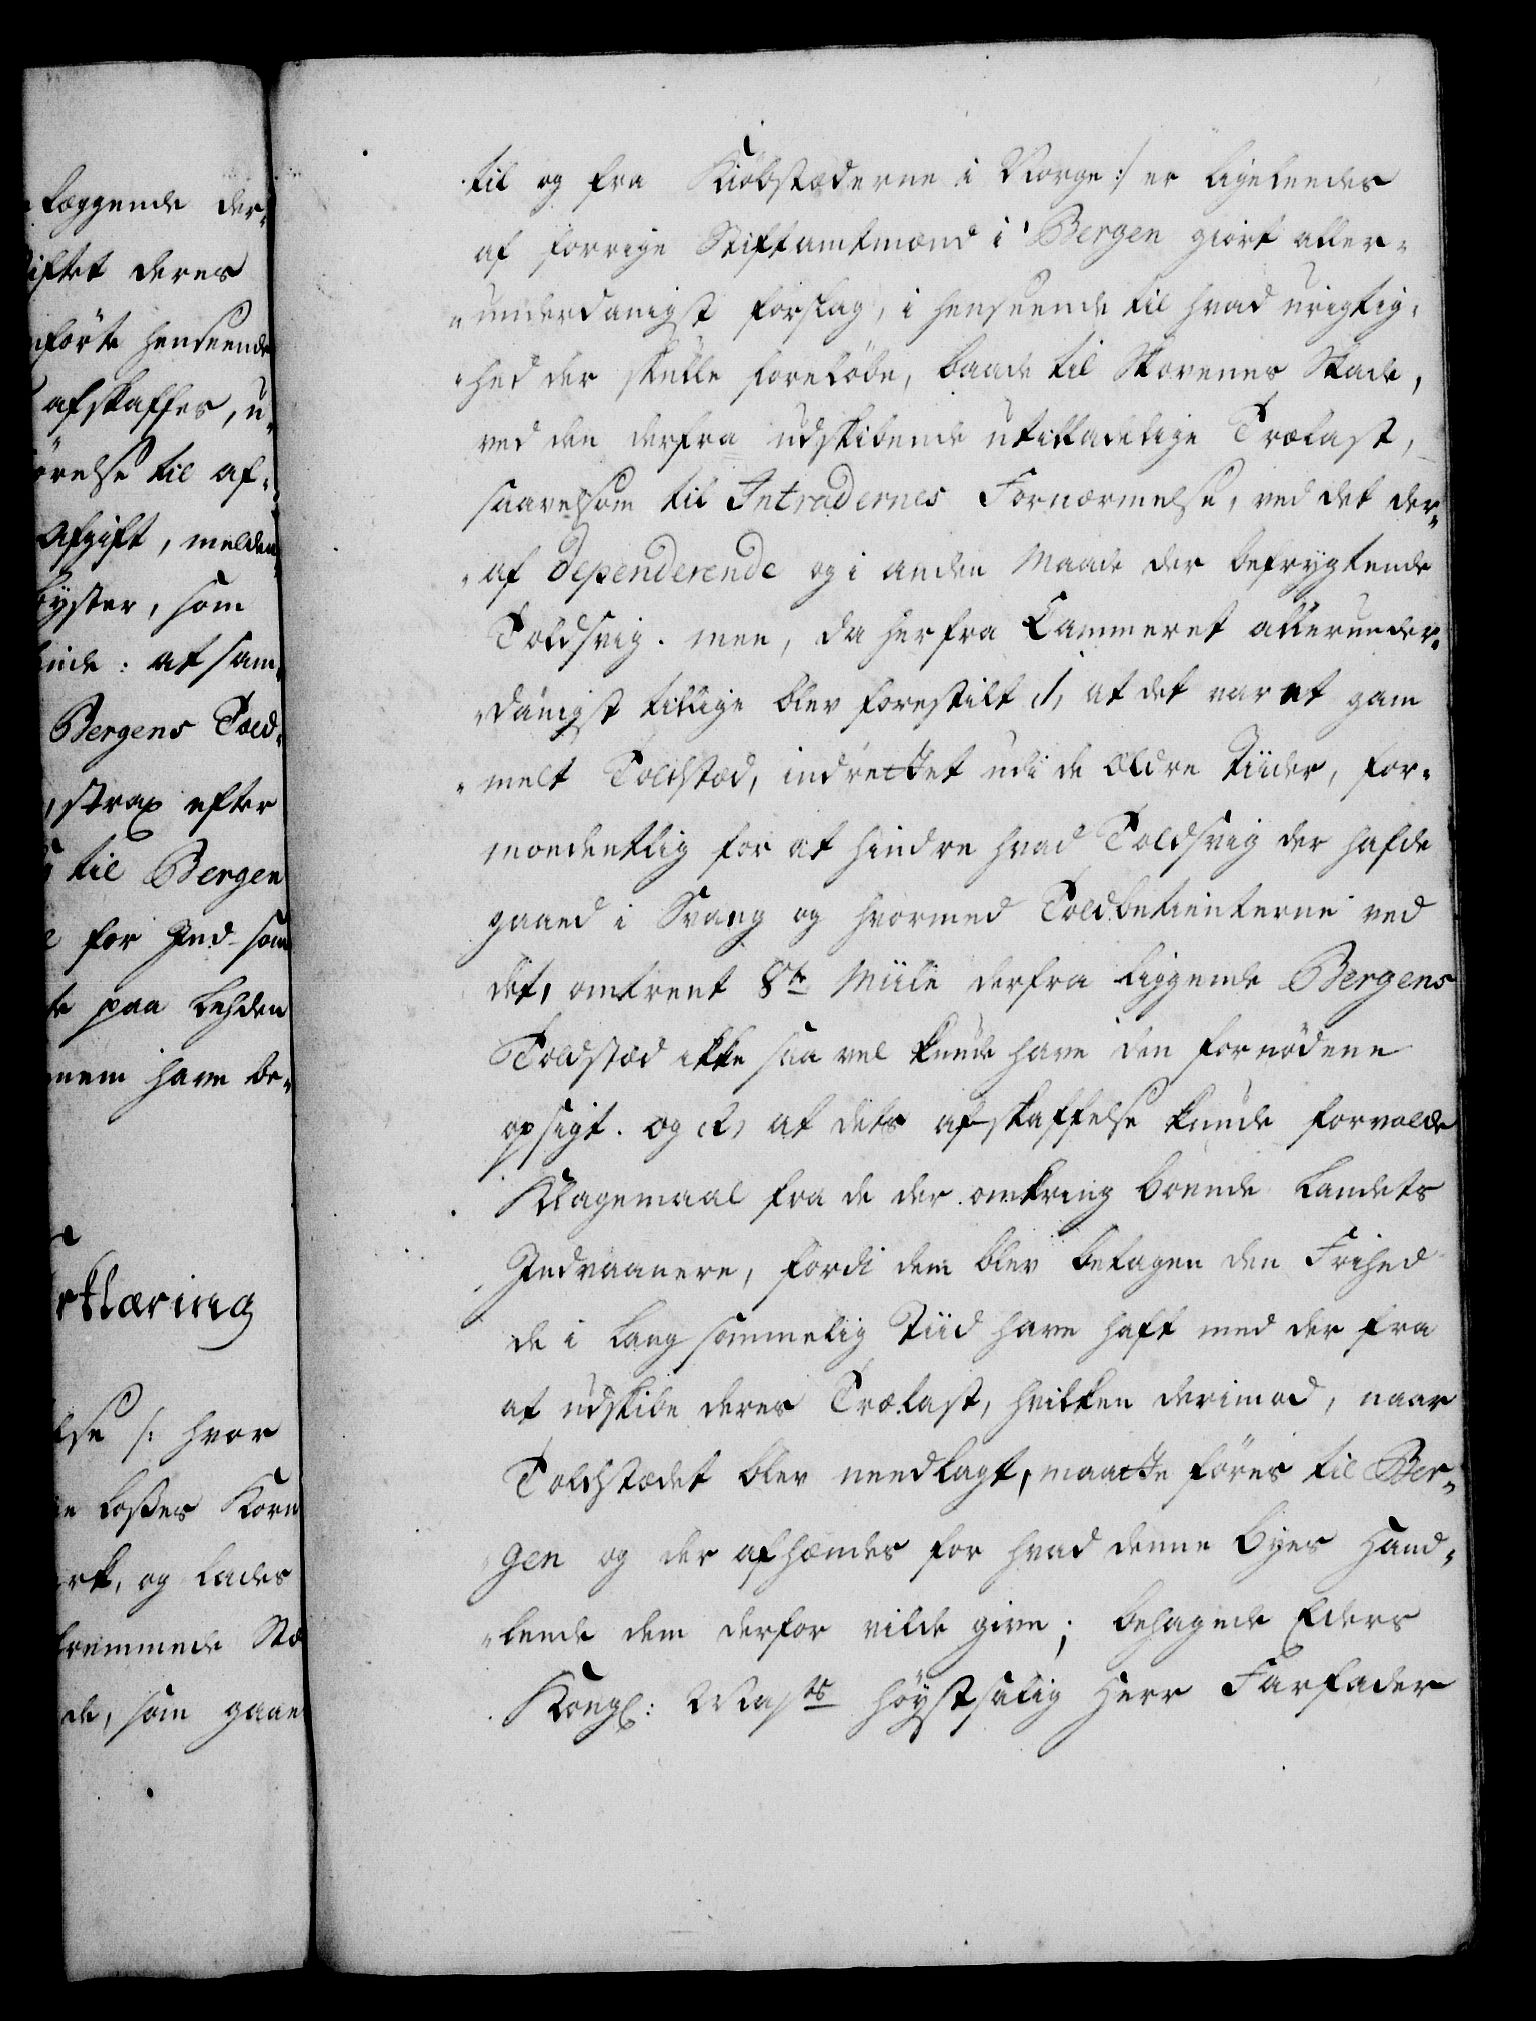 læggende der-
iftet deres
nførte henseende
afskaffes, u-
ørelse til af-
Afgift, melden
byster, som
inde: at sam-
Bergens Told-
, strax efter
til Bergen
for Ind- som
te paa Lehden
nem have be-
rklæring
lse /: hvor
e losses Korn
rk, og lades
fremmede Stæ
de, som gaae
til og fra Kiöbstæderne i Norge :/ er ligeleedes
af forrige Stiftamtmænd i Bergen giort aller-
underdanigst forslag, i henseende til hvad urigtig-
hed der skulle foreløbe, baade til Skovenes Skade,
ved den derfra udskibende utilladelige Trælast,
saavelsom til Intradernes Fornærmelse, ved det der-
af dependerende og i anden Maade der befrygtende
Toldsvig. men, da herfra Cammeret allerunder-
danigst tillige blev forestilt 1, at det var et gam
melt Toldsted, indrettet udi de Ældre Tiider, for-
moedentlig for at hindre hvad Toldsvig der hafde
gaaed i Svang og hvormed Toldbetienterne ved
det, omtrent 8te Miile derfra liggende Bergens
Toldsted ikke saa vel kunde have den fornødene
opsigt. og 2, at dets afskaffelse kunde forvolde
Klagemaal fra de der omkring boende Landets
Indvaanere, fordi dem blev betagen den Frihed
de i langsommelig Tiid have haft med der fra
at udskibe deres Trælast, hvilken derimod, naar
Toldstedet blev needlagt, maatte føres til Ber-
gen og der afhændes for hvad denne Byes Hand-
lende dem derfor vilde give; behagede Eders
Kongl: Mayts høystsalig Herr Farfader